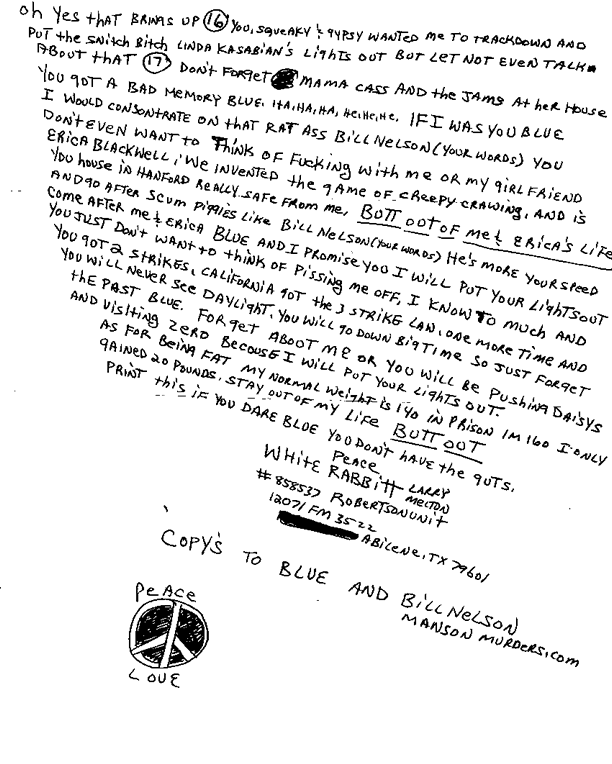 oh Yes that BRINGS UP (16) YOU, SQUEAKY & GYPSY WANTED ME TO TRACKDOWN AND
PUT the SNITCH BITCH LINDA KASABIAN'S LIGHTS OUT BUT LET NOT EVEN TALK
ABOUT THAT (17) DON'T FORGET MAMA CASS AND the JAMS AT heR HOUSE
YOU GOT A BAD MEMORY BLUE. HA, HA, HA, He, He, He. IF I WAS YOU BLUE
I WOULD CONSONTRATE ON that RAT ASS BILL NELSON (YOUR WORDS) YOU
DON'T EVEN WANT TO THINK OF FUCKING WITH ME OR MY GIRLFRIEND
ERICA BLACKWELL, WE INVENTED the GAME OF CREEPY CRAWING, AND IS
YOU HOUSE IN HANFORD REALLY SAFE FROM ME, BUTT OUT OF ME & ERICA'S LIFE
AND GO AFTER SCUM PIGGIES LIKE BILL NELSON (YOUR WORDS) He'S MORE YOUR SPEED
COME AFTER ME & ERICA BLUE AND I PROMISE YOU I WILL PUT YOUR LIGHTS OUT
YOU JUST DON'T WANT TO THINK OF PISSING ME OFF, I KNOW TO MUCH AND
YOU GOT 2 STRIKES, CALIFORNIA GOT the 3 STRIKE LAW, ONE MORE TIME AND
YOU WILL NEVER SEE DAYLIGHT, YOU WILL GO DOWN BIG TIME SO JUST FORGET
the PAST BLUE. FORGET ABOUT ME OR YOU WILL BE PUSHING DAISYS
AND VISITING ZERO BECOUSE I WILL PUT YOUR LIGHTS OUT.
AS FOR BEING FAT MY NORMAL WEIGHT IS 140 IN PRISON IM 160 I ONLY
GAINED 20 POUNDS, STAY OUT OF MY LIFE BUTT OUT
PRINT this IF YOU DARE BLUE YOU DON'T HAVE the GUTS.
PEACE
WHITE RABBITT LARRY MELTON
# 858537 ROBERTSON UNIT
12071 FM 3522
ABILENE, TX 79601
COPY'S TO BLUE AND BILL NELSON
MANSON MURDERS.COM
PEACE
LOVE